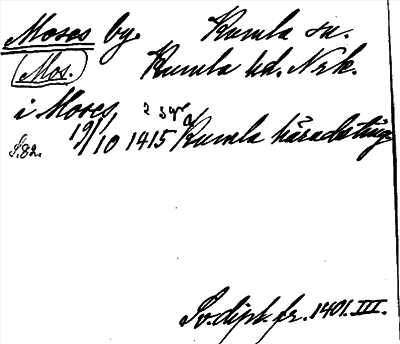 Moses by. Kumla sn.
Mos. Kumla hd. Nrk.
i Moses
19/10 1415 Kumla häradsting
S.82.
Sv.dipl. fr. 1401. III.